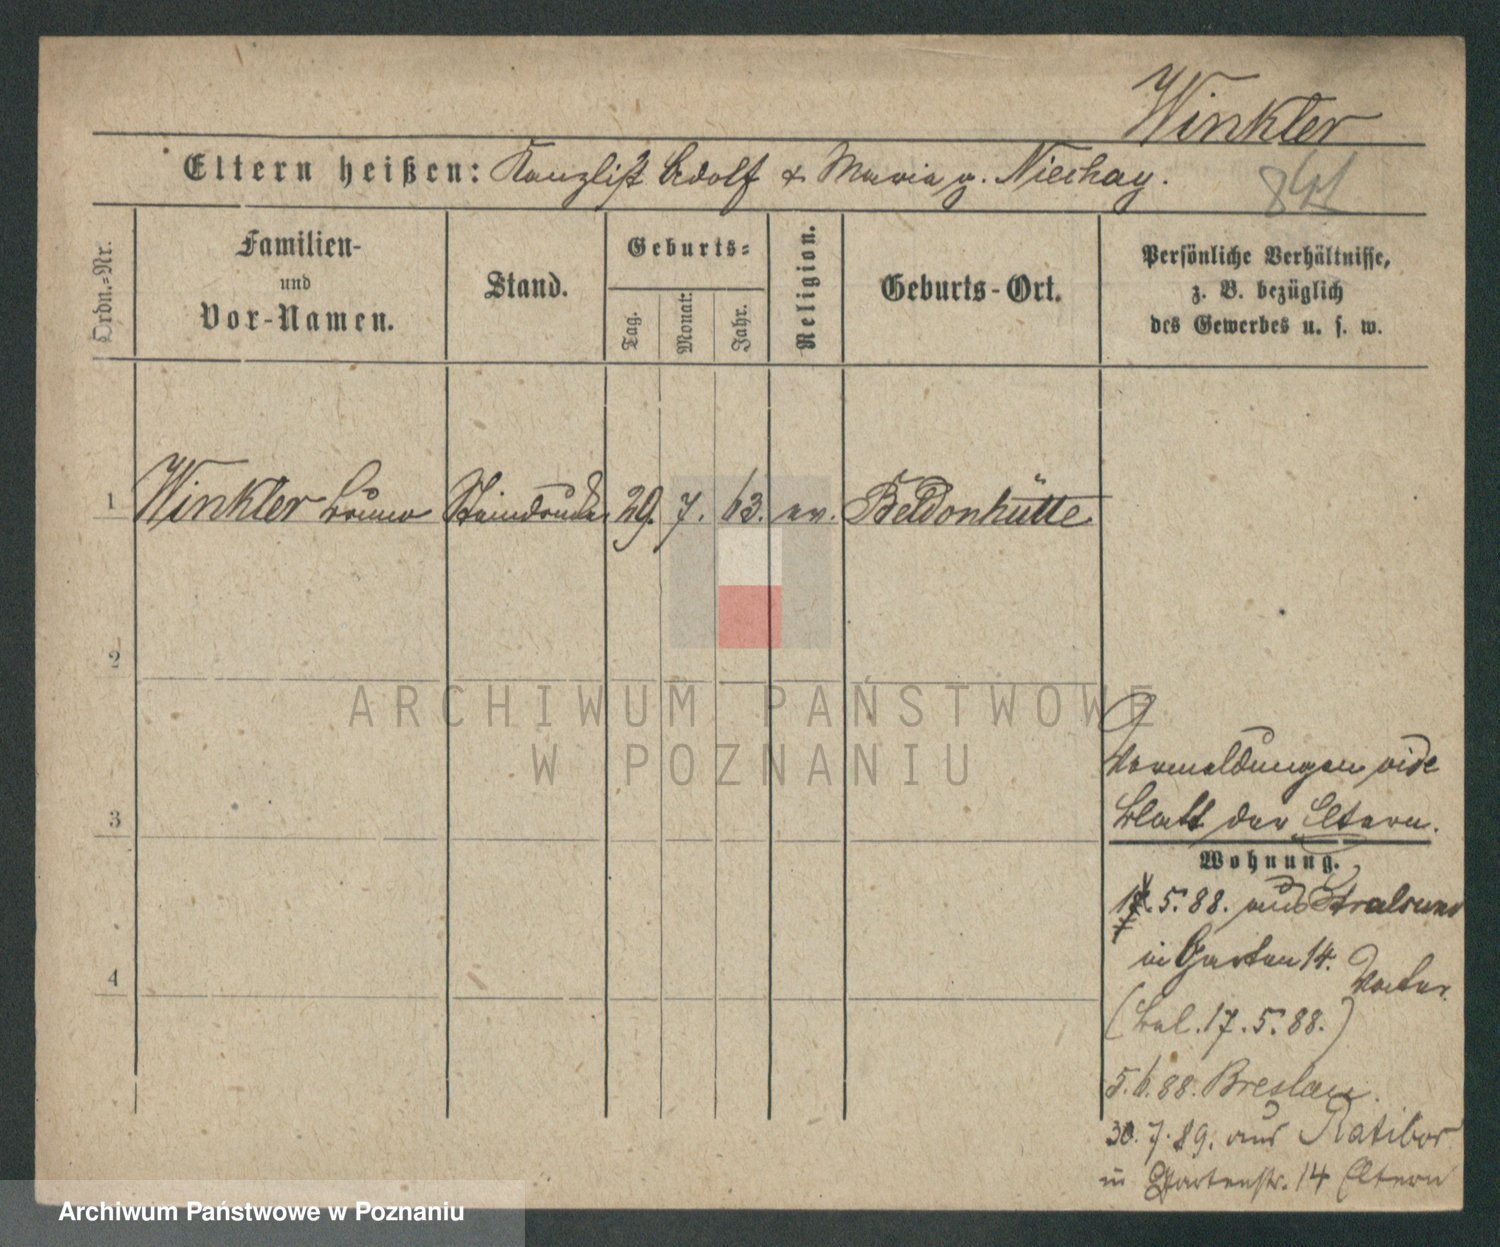 Winkler
Eltern heißen: Kanzlist Adolf & Maria g. Niechay.
841
Ordn.-Nr.
Familien-
und
Vor-Namen.
Stand.
Geburts-
Tag.
Monat.
Jahr.
Religion.
Geburts-Ort.
Persönliche Verhältnisse,
z. B. bezüglich
des Gewerbes u. s. w.
1 Winkler Bruno Steindrucker 29. 7. 63. ev. Beldonhütte
2
3
4
Vormeldungen vide
Blatt der Eltern.
Wohnung.
17. 5. 88. aus Stralsund
in Garten 14. Vater.
(bal. 17. 5. 88.)
5. 6. 88. Breslau.
30. 7. 89. aus Ratibor
in Gartenstr. 14 Eltern
ARCHIWUM PAŃSTWOWE
W POZNANIU
Archiwum Państwowe w Poznaniu